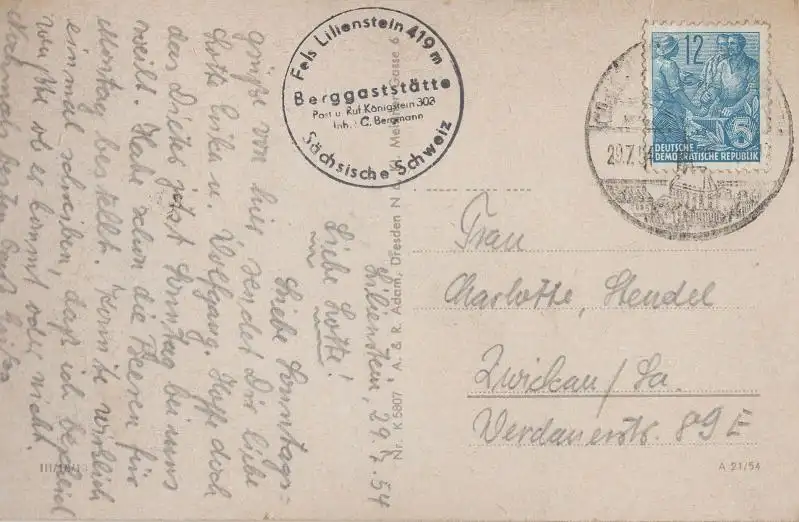 Lilienstein, 29.7.54
Liebe Lotte!
Liebe Sonntags-
grüße von hier sendet Dir liebe
Lotte Erika u. Wolfgang. Hoffe doch
das Dieter jetzt Sonntag bei uns
weilt. Habe schon die Beeren für
Montag bestellt. Könnte wirklich
einmal schreiben, daß ich bescheid
wüßte ob er kommt oder nicht.
Nochmals besten Gruß
Fels Lilienstein 419 m
Berggaststätte
Post u. Ruf Königstein 303
Inh.: C. Bergmann
Sächsische Schweiz
12
5
DEUTSCHE
DEMOKRATISCHE REPUBLIK
29.7.54
Frau
Charlotte, Stendel
Zwickau/Sa.
Werdauerstr. 89 E
Nr. K 5807 * A. & R. Adam, Dresden N
Gasse 6
A 21/54